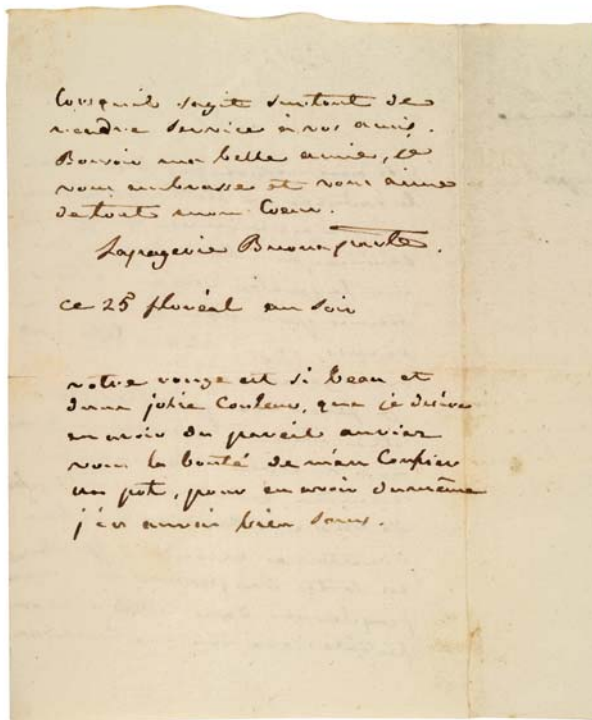 lorsquil sagit surtout de
rendre service à vos amis.
Bonsoir ma belle amie, je
vous embrasse et vous aime
de tout mon Coeur.
Lapagerie Buonaparte.
ce 25 floréal au soir
votre rouge est si beau et
dune jolie Couleur, que je désire
en avoir du pareil auriez
vous la bonté de m'en Confier
un pot, pour en avoir du même
j'en aurai bien soins.